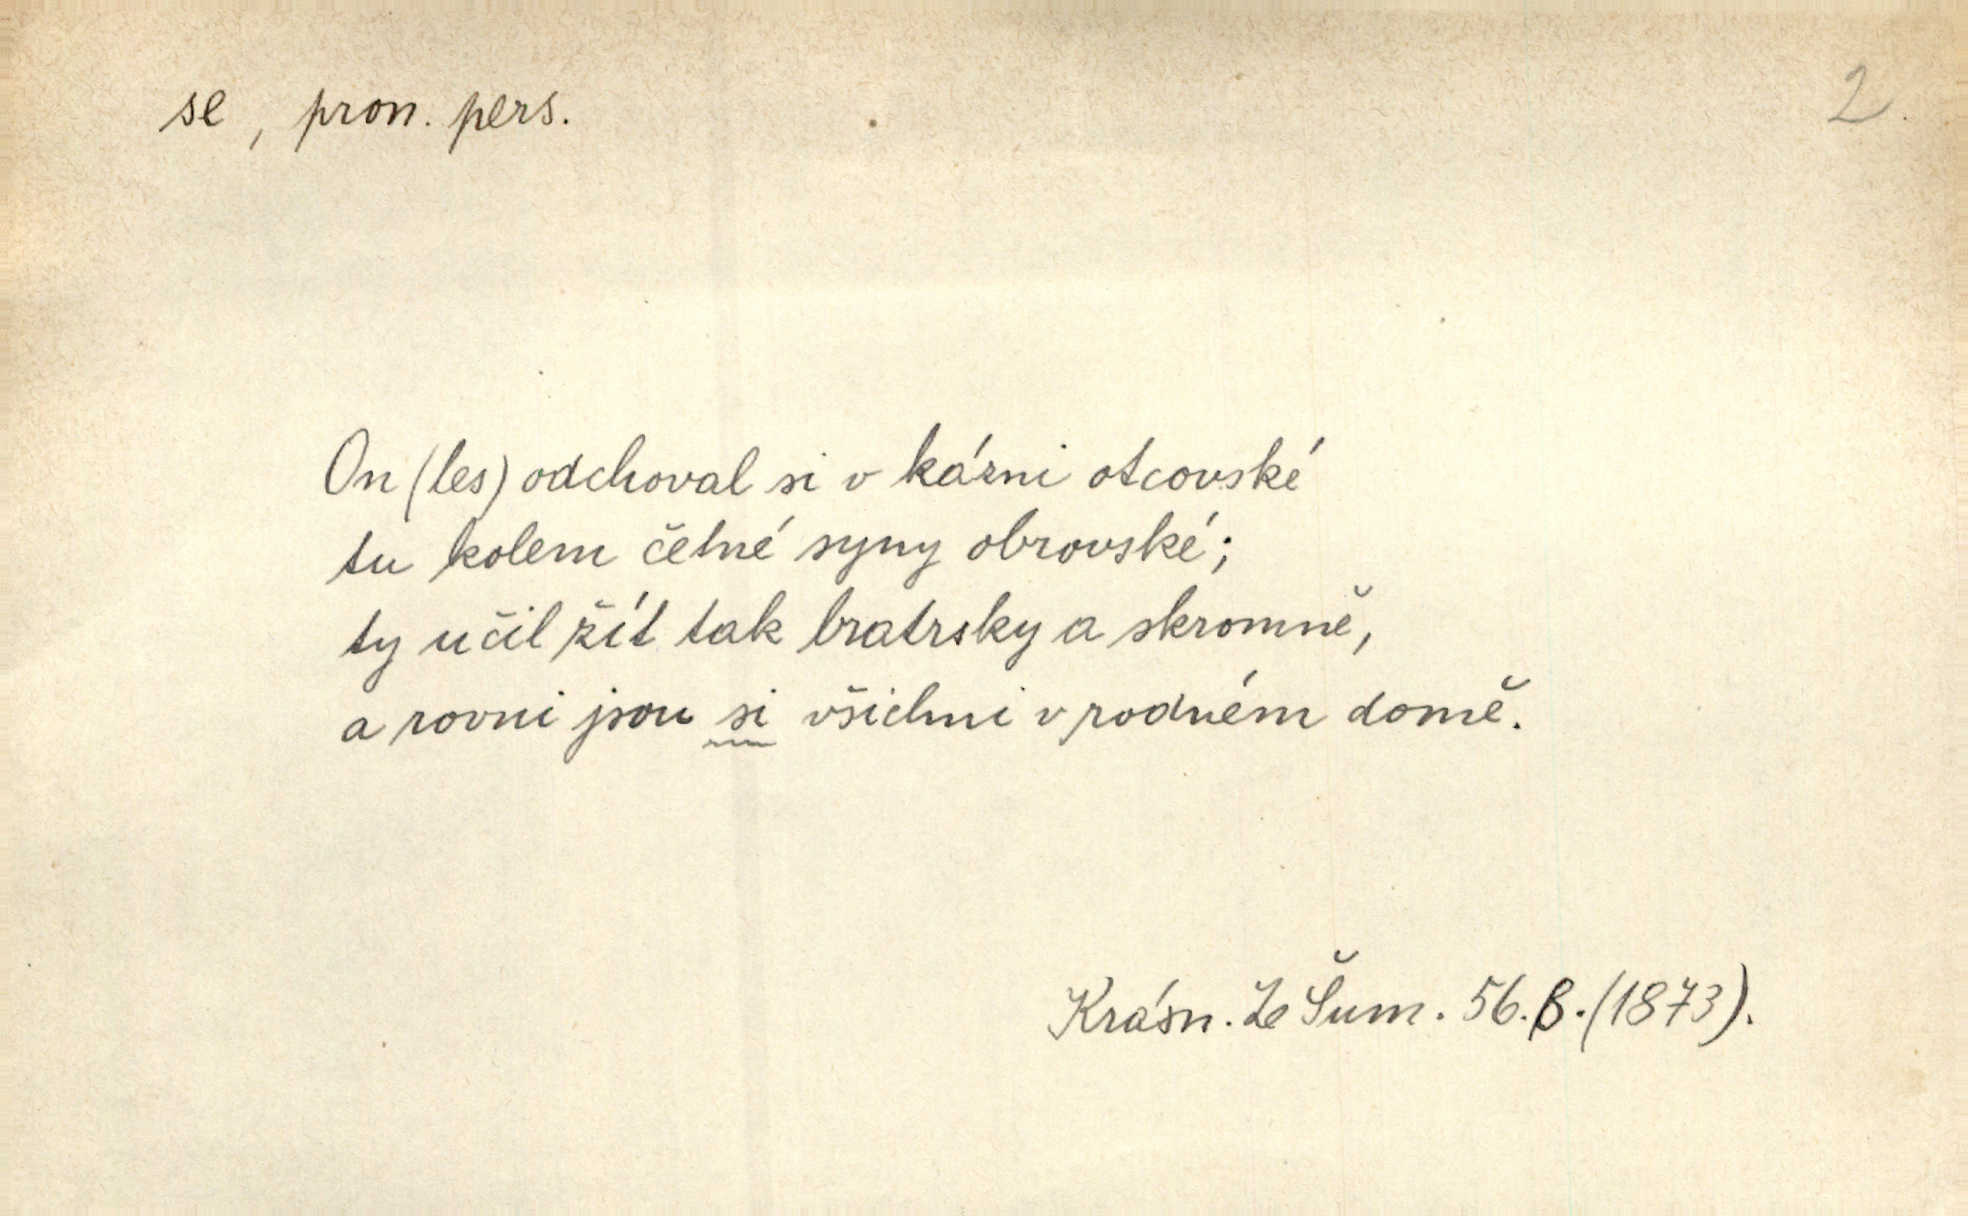 se, pron. pers.
2.
On (les) odchoval si v kázni otcovské
tu kolem četné syny obrovské;
ty učil žít tak bratrsky a skromně,
a rovni jsou si všichni v rodném domě.
Krásn. Ze Šum. 56. B. (1873).